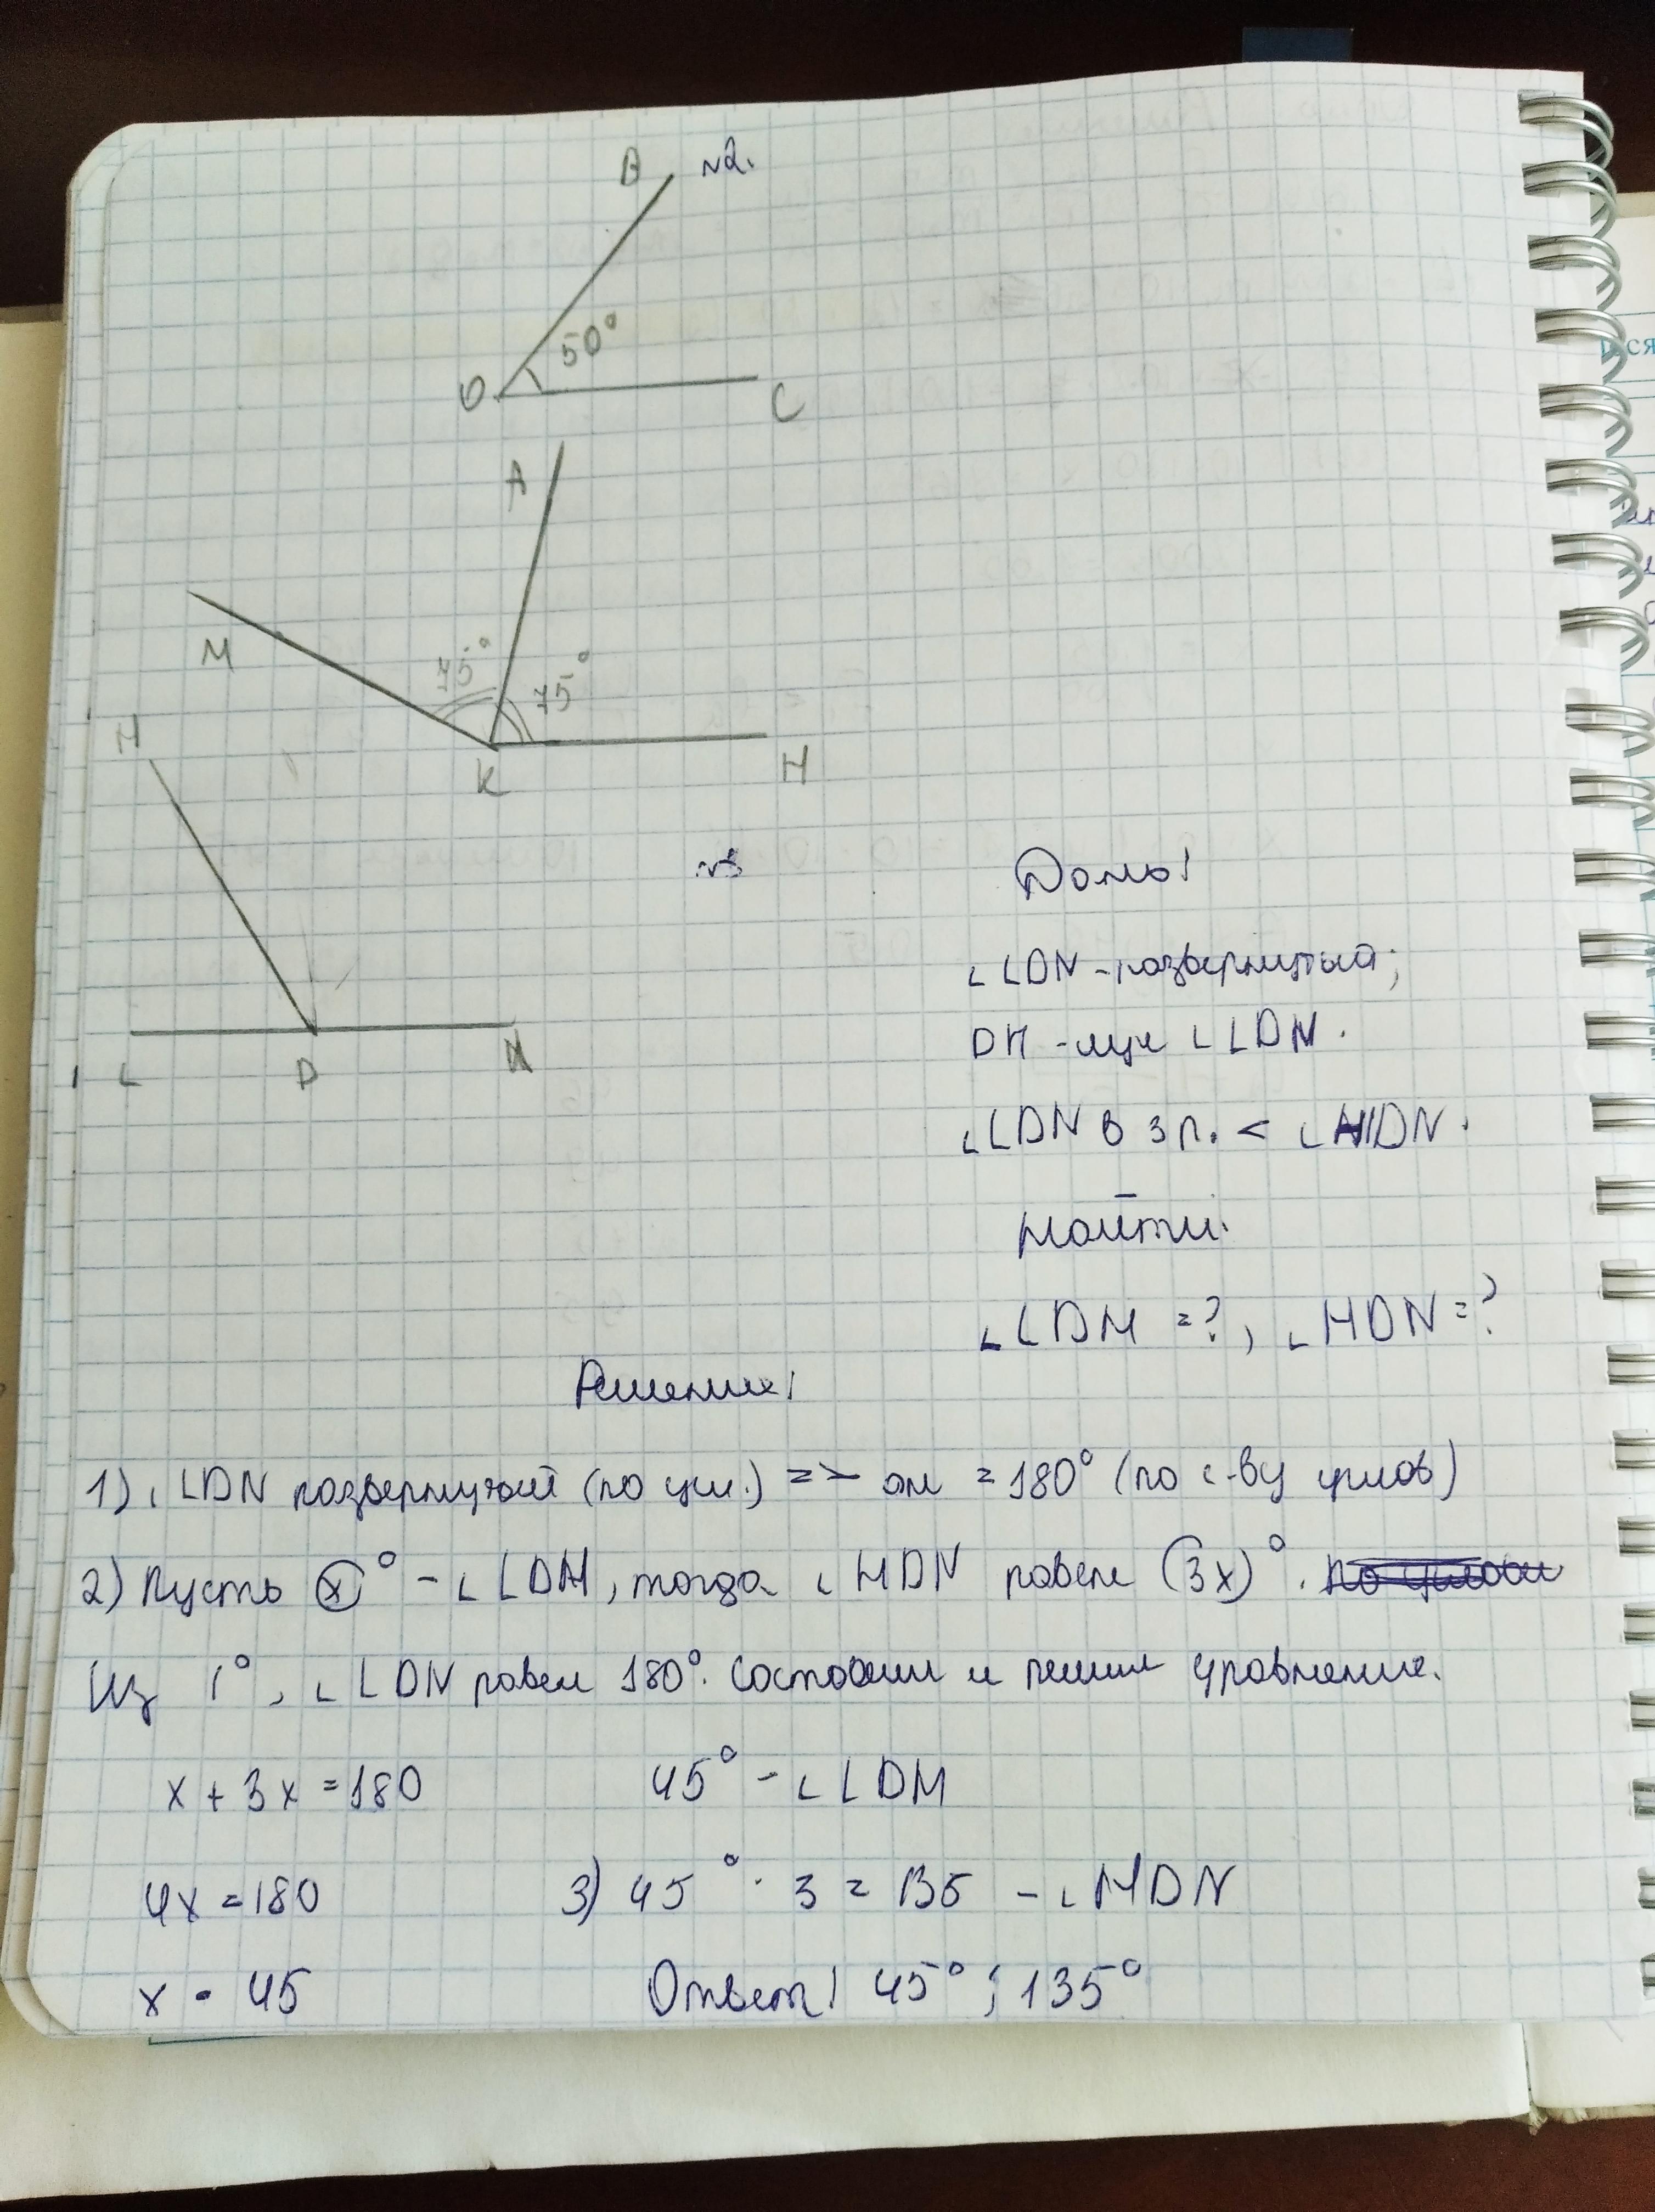 B №2.
50°
O C
A
M 75° 75°
K H
M
№3
L D N
Дано:
∠LDN - развернутый;
DM - луч ∠LDN.
∠LDN в 3 р. < ∠MDN.
Найти:
∠LDM = ?, ∠MDN = ?
Решение:
1) ∠LDN развернутый (по усл.) => он = 180° (по с-ву углов)
2) Пусть (x)° - ∠LDM, тогда ∠MDN равен (3x)°.
Из 1°, ∠LDN равен 180°. Составим и решим уравнение.
x + 3x = 180 45° - ∠LDM
4x = 180 3) 45° · 3 = 135 - ∠MDN
x = 45 Ответ: 45°; 135°